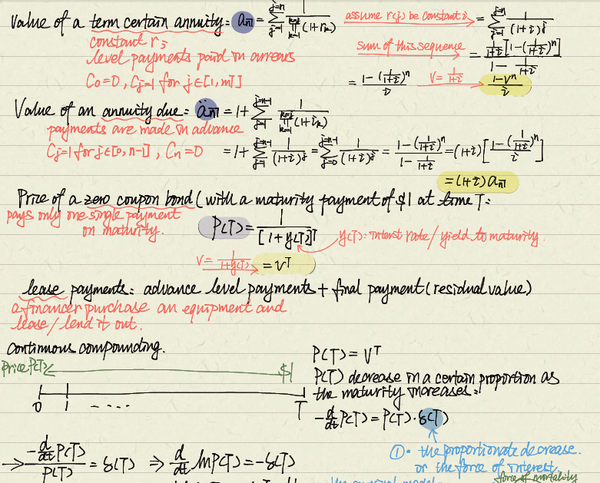 Value of a term certain annuity: a_n̅| = Σ_{j=1}^{j=n} 1/∏_{k=1}^{j}(1+i_k) assume r(j) be constant i → = Σ_{j=1}^{j=n} 1/(1+i)^j
constant r_j
level payments paid in arrears
C_0=0, C_j=1 for j∈[1,n]
Sum of this sequence → = 1/(1+i) [1-(1/(1+i))^n] / (1 - 1/(1+i))
= (1-(1/(1+i))^n)/i V=1/(1+i) → (1-v^n)/i
Value of an annuity due: ä_n̅| = 1+ Σ_{j=1}^{j=n-1} 1/∏_{k=1}^{j}(1+i_k)
payments are made in advance
C_j=1 for j∈[0,n-1], C_n=0
= 1+ Σ_{j=1}^{j=n-1} 1/(1+i)^j = Σ_{j=0}^{j=n-1} 1/(1+i)^j = (1-(1/(1+i))^n)/(1-1/(1+i)) = (1+i)[(1-(1/(1+i))^n)/i]
= (1+i) a_n̅|
Price of a zero coupon bond (with a maturity payment of $1 at time T:
pays only one single payment
on maturity.
P(T) = 1/[1+y(T)]^T
y(T): interst rate/yield to maturity.
V=1/(1+y(T)) → = v^T
lease payments: advance level payments + final payment (residual value)
a financer purchase an equipment and
lease/lend it out.
continuous compounding.
Price P(T) $1
0 1 .... T
P(T) = V^T
P(T) decrease in a certain proportion as
the maturity increases:
-d/dt P(T) = P(T)·δ(T)
① · the proportionate decrease.
or the force of interest.
→ (-d/dt P(T))/P(T) = δ(T) ⇒ d/dt lnP(T) = -δ(T)
force of mortality